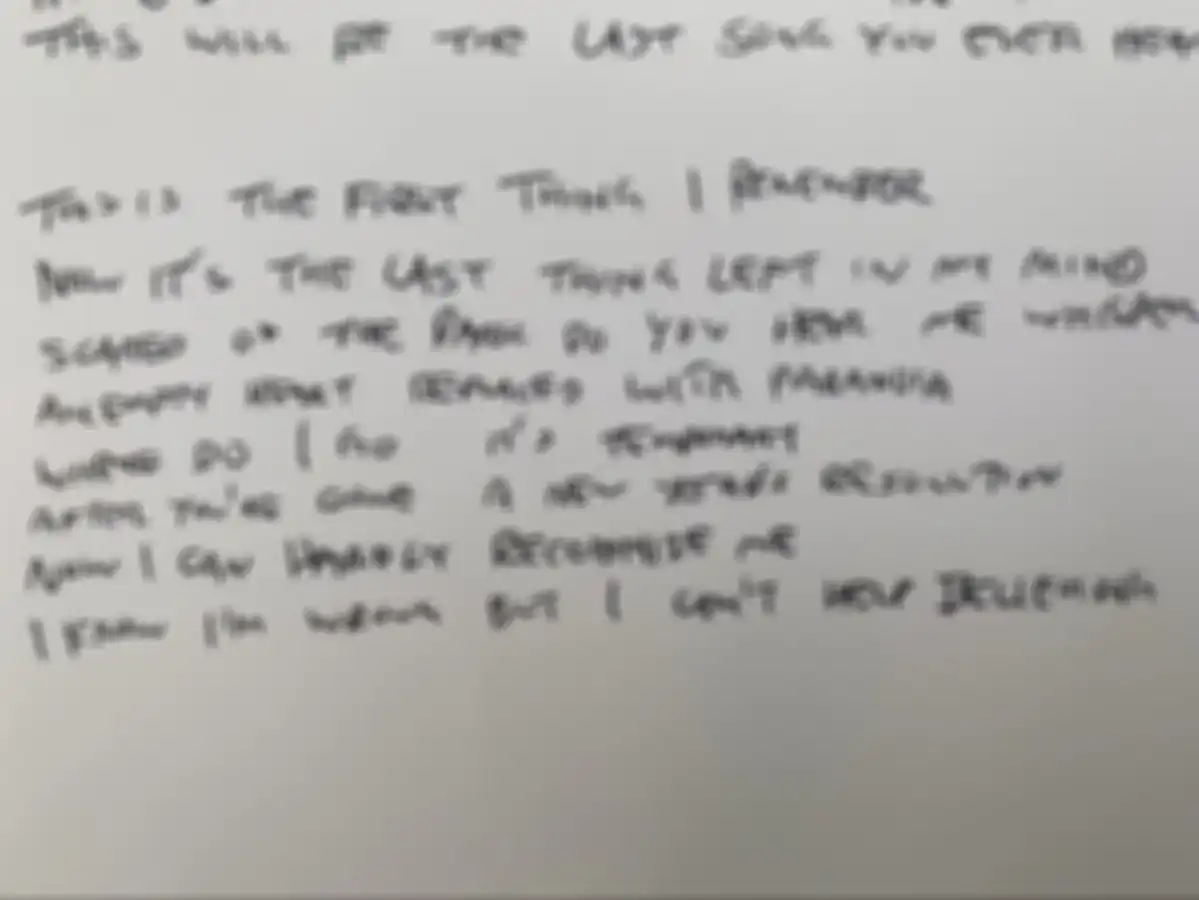 THIS WILL BE THE LAST SONG YOU EVER HEAR
THIS IS THE FIRST THING I REMEMBER
NOW IT'S THE LAST THING LEFT IN MY MIND
SCARED OF THE DARK DO YOU HEAR ME WHISPER
AN EMPTY HEART REPLACED WITH PARANOIA
WHERE DO I GO IT'S TEMPORARY
AFTER YOU'RE GONE A NEW YEAR'S RESOLUTION
NOW I CAN HARDLY RECOGNISE ME
I KNOW I'M WRONG BUT I CAN'T HELP BELIEVING